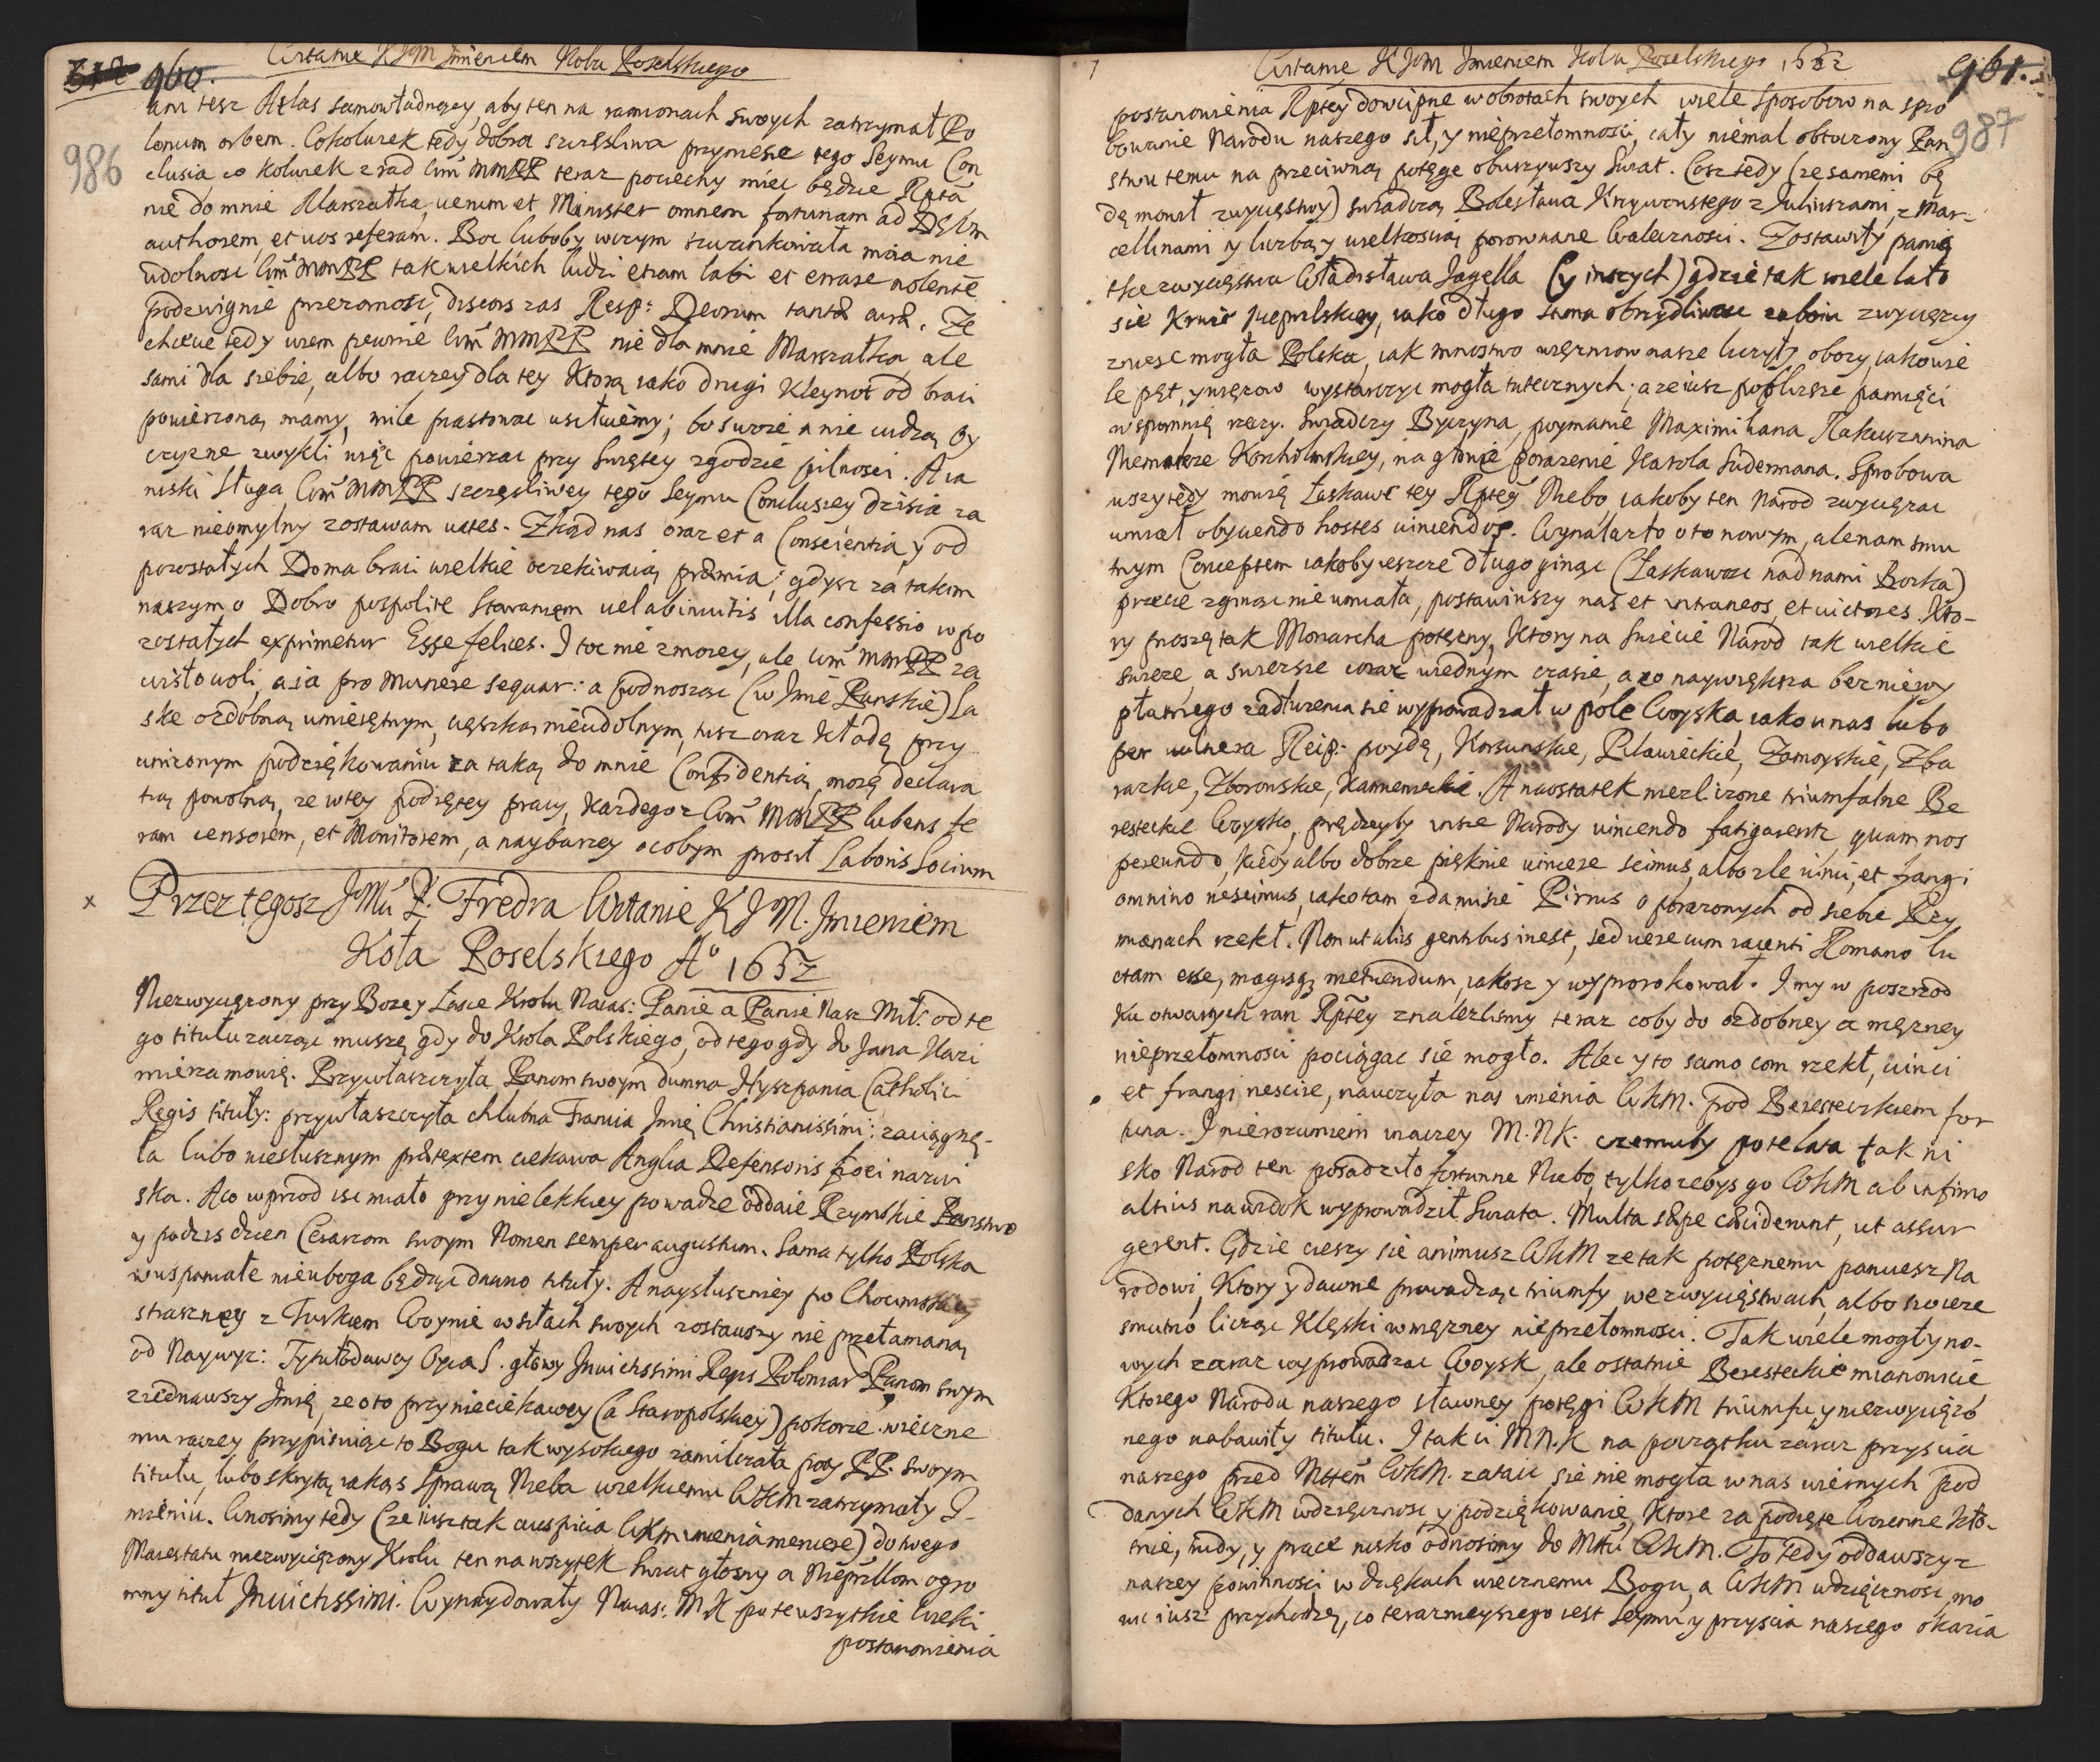 960.
986
Witanie KJM Imieniem Koła Poselskiego
ani tesz Atlas samowładnący, aby ten na ramionach swoych zatrzymał Po
lonum orbem. Cokolwiek tedy dobra szczęsliwa przyniesie tego Seymu Con
clusia, co kolwiek z rad MMPP teraz pociechy mieć będzie Rpta,
nie do mnie Marszałka, uerum et Minister omnem fortunam ad
authorem, et uos referam. Boć luboby w czym szwankowała moia nie
udolność MMPP tak wielkich ludzi etiam labi et errare nolente
podzwignie przezorność, Resp: Deorum cura. Ze
chcecie tedy wiem pewnie MMPP nie dla mnie Marszałka ale
sami dla siebie, albo raczey dla tey Którą iako drugi Kleynot od braci
powierzoną mamy, mile
czyznę zwykli więc powierzac przy Swiętey zgodzie pilnosci. A ia
niski Sługa MMPP szczęsliwey tego Seymu Conclusiey dzisia za
raz nieomylny zostawam uates. Zkąd nas oraz et a Conscientia, y od
pozostałych Doma braci wielkie oczekiwaią præmia; gdysz za takim
naszym o Dobro pospolite Staraniem uel ab inuitis illa confessio w po
zostałych exprimetur Esse felices. I toć nie z morey, ale MMPP za
wisło woli, a ia pro Munere sequar: a podnosząc (w Imie Panskie) La
skę ozdobną umieiętnym, cięszką nieudolnym, tusz oraz kładę przy
unizonym podziękowaniu za taką do mnie Confidentią, moię declara
tią powolną, ze w tey podiętey pracy, kazdego z MMPP lubens fe
ram censorem, et Monitorem, a naybarzey ocobym prosił Laboris Socium
x
Przez tegosz JMci P. Fredra Witanie KJM. Imieniem
Koła Poselskiego Aº 1652
Niezwyciężony przy Bozey Łasce Krolu Naias: Panie a Panie Nasz Mił: od te
go titułu zacząc muszę, gdy do Krola Polskiego, od tego gdy do Jana Kazi
mierza mowię. Przywłaszczyła Panom swoym dumna Hyszpania Catholici
Regis tituły: przywłaszczyła chlubna Francia Imię Christianissimi: zaciągnę-
ła lubo niesłusznym prætextem ciekawa Anglia Defensoris fidei nazwi
ska. A co wprzod isc miało przy nielekkiey powadze oddaie Rzymskie Panstwo
y podzis dzien Cesarzom swoym Nomen semper augustum. Sama tylko Polska
wuspaniałe nieuboga będąc dawno tituły. A naysłuszniey po Chocimskiey
straszney z Turkiem Woynie w siłach swoych zostawszy nie przełamaną,
od Naywyz: Tytułodawcy Oyca S. głowy Inuictissimi Regis Poloniar Panom swym
ziednawszy Imię, ze oto przy nieciekawey (a Staropolskiey) pokorze. wieczne
mu raczey przypisuiąc to Bogu tak wysokiego zamilczała przy PP. swoym
titułu, lubo skrytą iakąs Sprawą Nieba wielkiemu WKM zatrzymały I-
mieniu. Wnosimy tedy (ze iusz tak auspicia WKM imienia meruere) do twego
Maiestatu niezwyciężony Krolu ten na wszytek Swiat głosny a ogro
mny tituł Inuictissimi. Wynaydowały Naias: MK po te wszytkie wieki
postanowienia

961.
987
Witanie KJM Imieniem Koła Poselskiego 1652
postanowienia Rptey dowcipne w obrotach swoych wiele sposobow na spro
bowanie Narodu naszego sił, y nieprzełomnosci, cały niemal obtoczony Pan
stwu temu na przeciwną potęgę obuszywszy Swiat. Cosz tedy (ze samemi bę
dę mowił zwycięstwy) swiadczą Bolesława Krzywoustego z Juliuszami, z Mar-
cellinami y liczbą y wielkoscią porownane Waleczności. Zostawiły pamią
tkę zwycięstwa Władisława Jagella (y inszych) gdzie tak wiele lało
się krwie Nieprzilskiey, iako długo sama obrzydliwosc zaboiu zwyciezcy
zniesc mogła Polska, iak mnostwo więzniow nasze liczyły obozy, iako wie
le pęt, y więzow wystarczyc mogła tutecznych; a ze iusz poblizsze pamięci
wspomnię rzeczy. Swiadczy Byczyna, poymanie Maximiliana Rakuszanina
Niemniersze Korcholmskiey, na głowie porazenie Karola Sudermana. Sprobowa
wszy tedy mowię Łaskawe tey Rptey Niebo, iakoby ten Narod zwyciężac
umiał obyuendo hostes uincendos. Wynalazło oto nowym, ale nam smu
tnym Conceptem iakoby ieszcze długo ginąc (Łaskawosc nad nami Boska)
przecie zginąc nie umiała, postawiwszy nas et intraneos, et uictores. Kto-
ry proszę tak Monarcha potęzny, Ktory na Swiecie Narod tak wielkie
swieze, a swiezsze coraz w iednym czasie, a co naywiększa bez niewy
płatnego zadłuzenia sie wyprowadzał w pole Woyska, iako u nas lubo
per uulnera Reip: poydę, Korsunskie, Pilawieckie, Zamoyskie, Zba
raskie, Zborowskie, Kamienieckie. A naostatek niezliczone triumfalne Be
resteckie Woysko, prędzeyby insze Narody uincendo fatigarentr, quam nos
pereundo, kiedy albo dobrze pięknie uincere scimus, albo zle uinci, et frangi
omnino nescimus, iako tam zda mi się Pirrus o porazonych od siebie Rzy
mianach rzekł. Non ut aliis gentibus inest, sed uere cum iacenti Romano lu
ctam esse, magisq; metuendum, iakosz y wyprorokował. I my w poszrod
ku otwartych ran Rptey znalezlismy teraz coby do ozdobney a męzney
nieprzełomnosci pociągac sie mogło. Alec y to samo com rzekł, uinci
et frangi nescire, nauczyła nas imienia WKM. pod Beresteczkiem for
tuna. I nie rozumiem inaczey M.N.K. czemuby po te lata tak ni
sko Narod ten posadziło fortunne Niebo, tylko zebys go WKM ab infimo
altius na widok wyprowadził Swiata. Multa sæpe ceciderunt, ut assur
gerent. Gdzie cieszy sie animusz WKM ze tak potęznemu panuiesz Na
rodowi, Ktory y dawne prowadząc triumfy we zwycięstwach, albo swieze
smutno licząc Klęski w męzney nieprzełomnosci. Tak wiele mogły no-
wych zaraz wyprowadzac Woysk, ale ostatnie Beresteckie mianowicie
Ktorego Narodu naszego sławney potęgi WKM triumfu y niezwycięzo
nego nabawiły titułu. I tak ci M.N.K na początku zaraz przyscia
naszego przed WKM. zataic się nie mogła w nas wiernych pod
danych WKM wdzięcznosc y podziękowanie, Ktore za podięte Woienne kło-
tnie, trudy, y prace nisko odnosimy do WKM. To tedy oddawszy z
naszey powinnosci w dziękach wiecznemu Bogu, a WKM wdzięcznosc, mo
wic iusz przychodzę, co teraznieyszego iest Seymu y przyscia naszego okazia